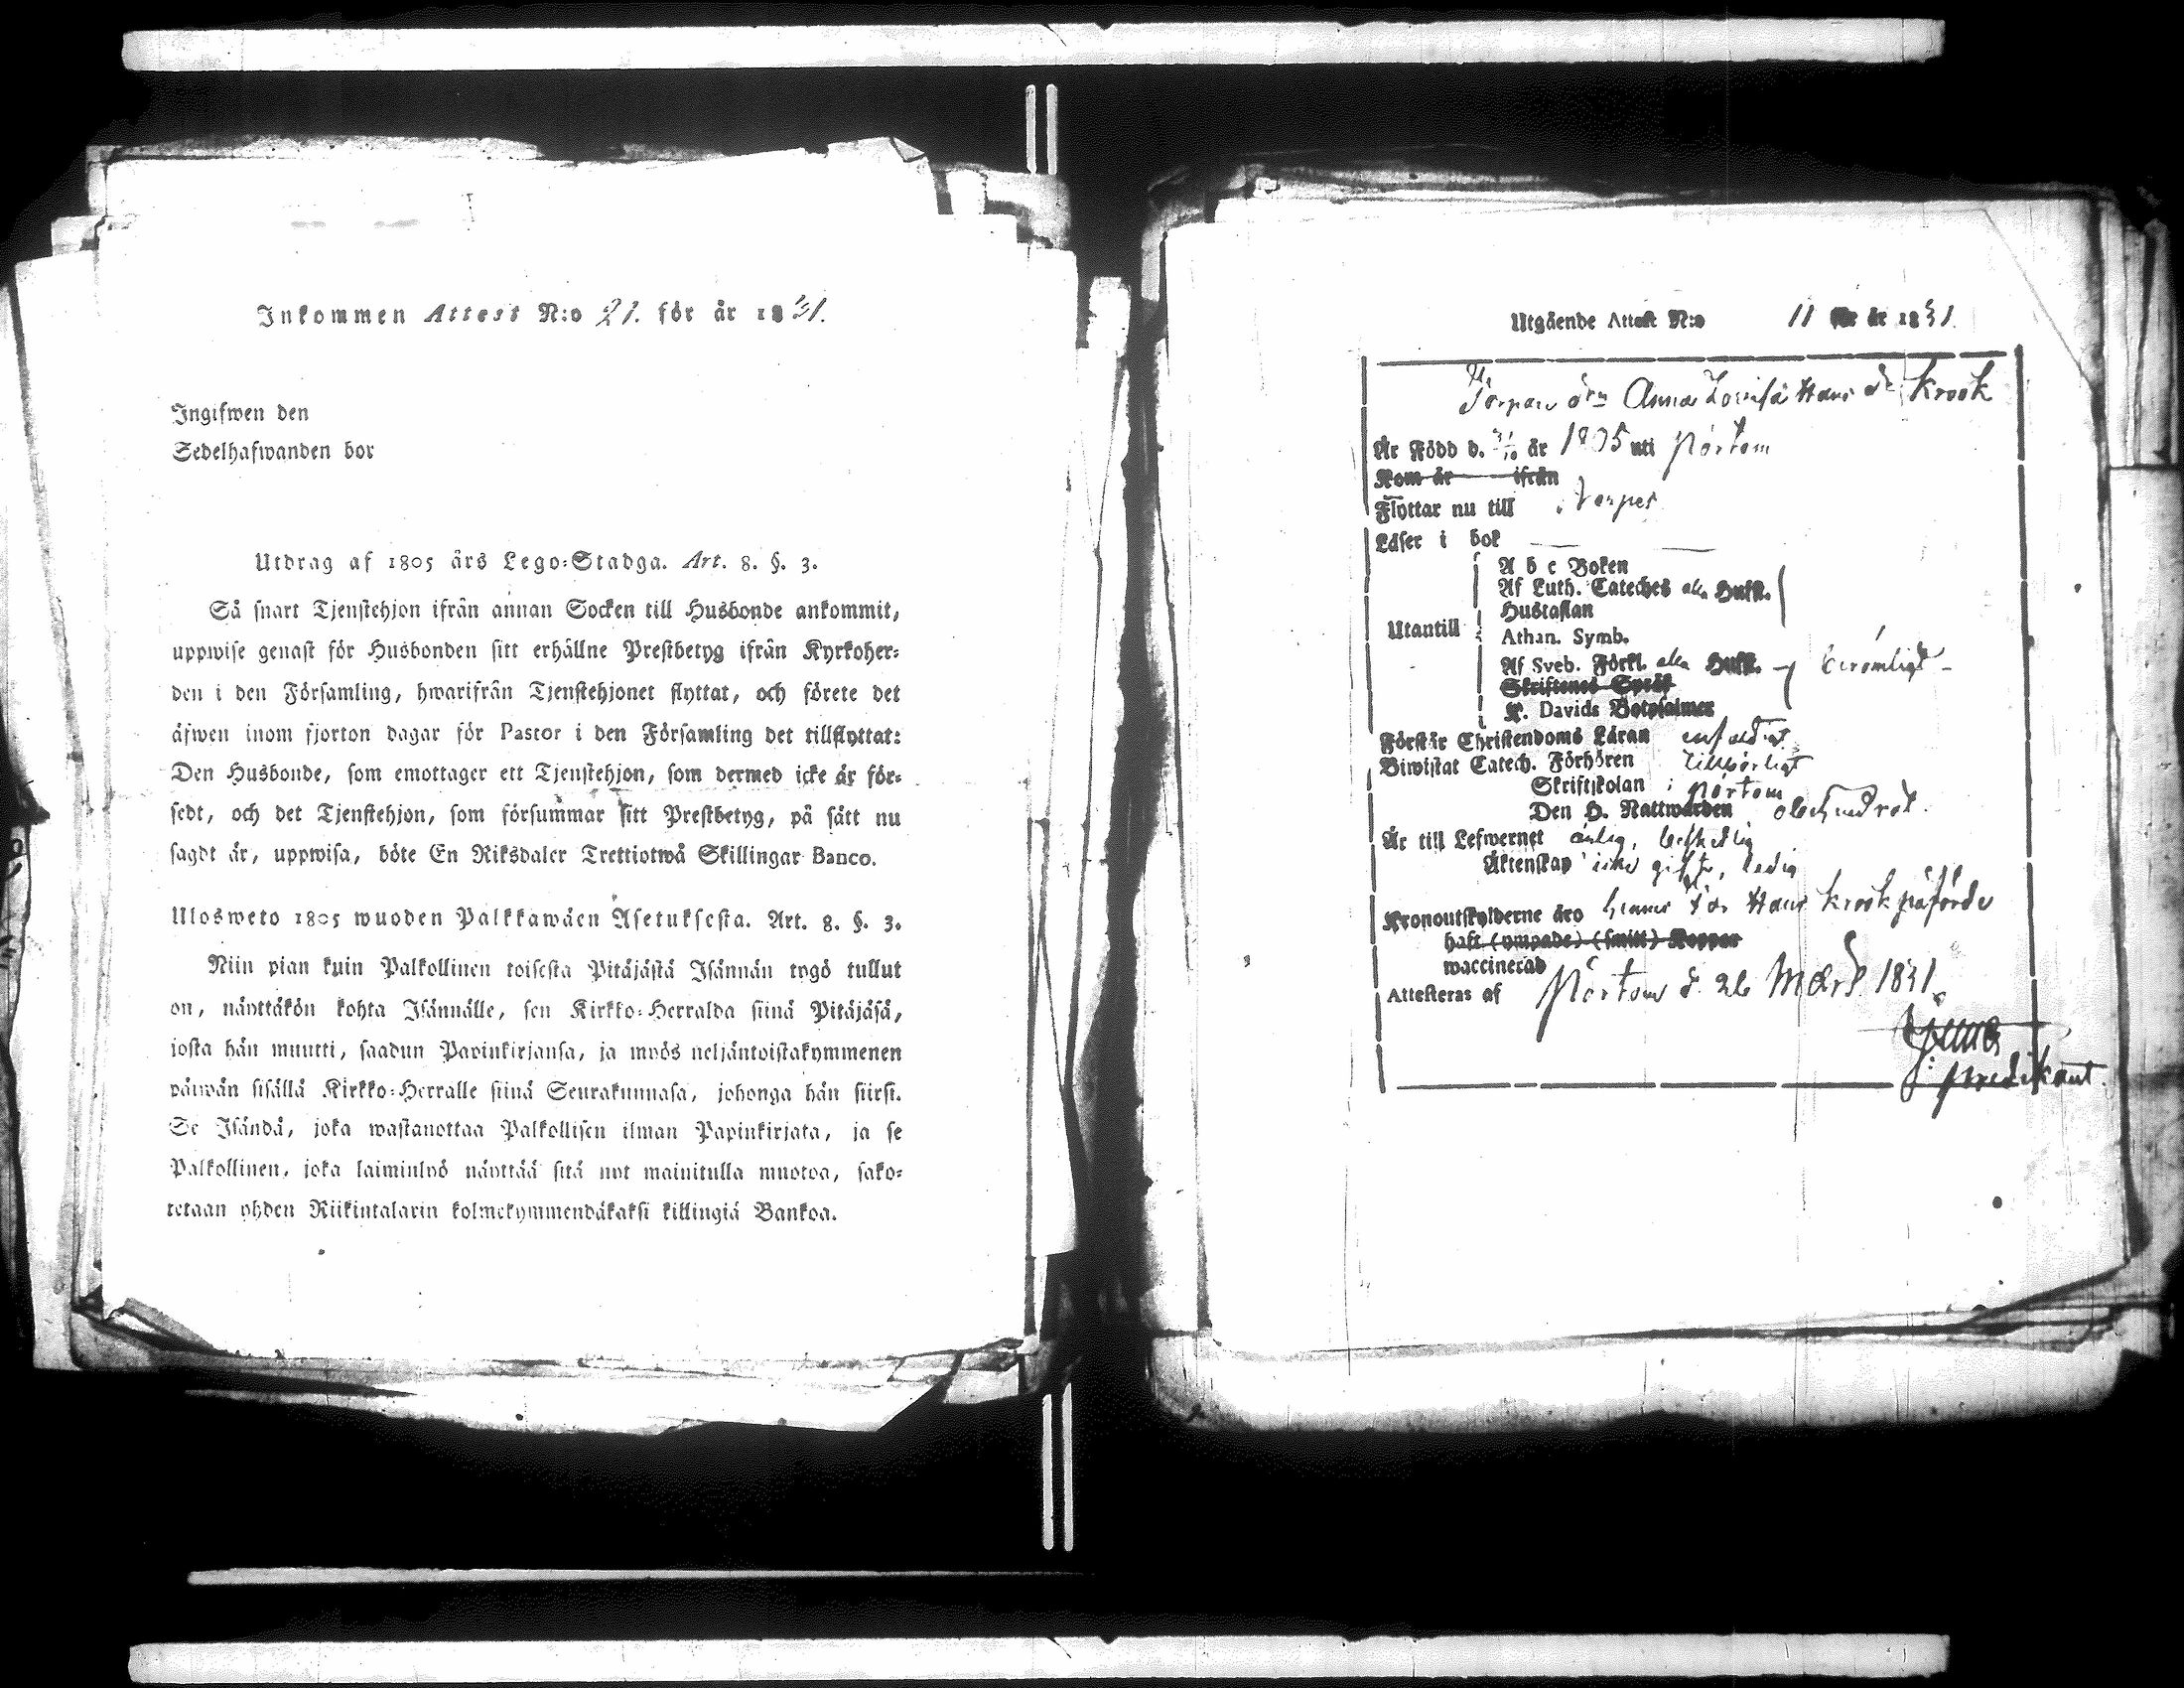 Inkommen Attest N:o 21. för år 1831.
Ingifwen den
Sedelhafwanden bor
Utdrag af 1805 års Lego-Stadga. Art. 8. §. 3.
Så snart Tjenstehjon ifrån annan Socken till Husbonde ankommit,
uppwise genast för Husbonden sitt erhållne Prestbetyg ifrån Kyrkoher-
den i den Församling, hwarifrån Tjenstehjonet flyttat, och förete det
äfwen inom fjorton dagar för Pastor i den Församling det tillflyttat:
Den Husbonde, som emottager ett Tjenstehjon, som dermed icke är för-
sedt, och det Tjenstehjon, som försummar sitt Prestbetyg, på sätt nu
sagdt är, uppwisa, böte En Riksdaler Trettiotwå Skillingar Banco.
Ulosweto 1805 wuoden Palkkawäen Asetuksesta. Art. 8. §. 3.
Niin pian kuin Palkollinen toisesta Pitäjästä Isännän tygö tullut
on, näyttäkön kohta Isännälle, sen Kirkko-Herralda siinä Pitäjäsä,
josta hän muutti, saadun Papinkirjansa, ja myös neljäntoistakymmenen
päiwän sisällä Kirkko-Herralle siinä Seurakunnasa, johonga hän siirsi.
Se Isändä, joka wastanottaa Palkollisen ilman Papinkirjata, ja se
Palkollinen, joka laiminlyö näyttää sitä nyt mainitulla muotoa, sako-
tetaan yhden Riikintalarin kolmekymmendäkaksi killingiä Bankoa.
Utgående Attest N:o 11 för år 1831
Anna Lovisa Hans dr Krook
Är Född d. år 1805 uti Pörtom
Kom år ifrån
Flyttar nu till Korpo
Läser i bok
A b c Boken
Af Luth. Cateches alla Hufst.
Hustaflan
Utantill
Athan. Symb.
Af Sveb. Förkl. alla Hufst. berömligt
Skriftenes Språk
K. Davids Botpsalmer
Förstår Christendoms Läran enfaldigt
Biwistat Catech. Förhören tillbörligt
Skriftskolan i Pörtom
Den H. Nattwarden obehindrat.
Är till Lefwernet ärlig, beskedlig
Äktenskap icke gift, ledig
Kronoutskylderne äro hennes Far Hans Krook påförde
haft (ympade) (smitt) Koppor
waccinerad
Attesteras af Pörtom d. 26 Mars 1831.
Predikant.